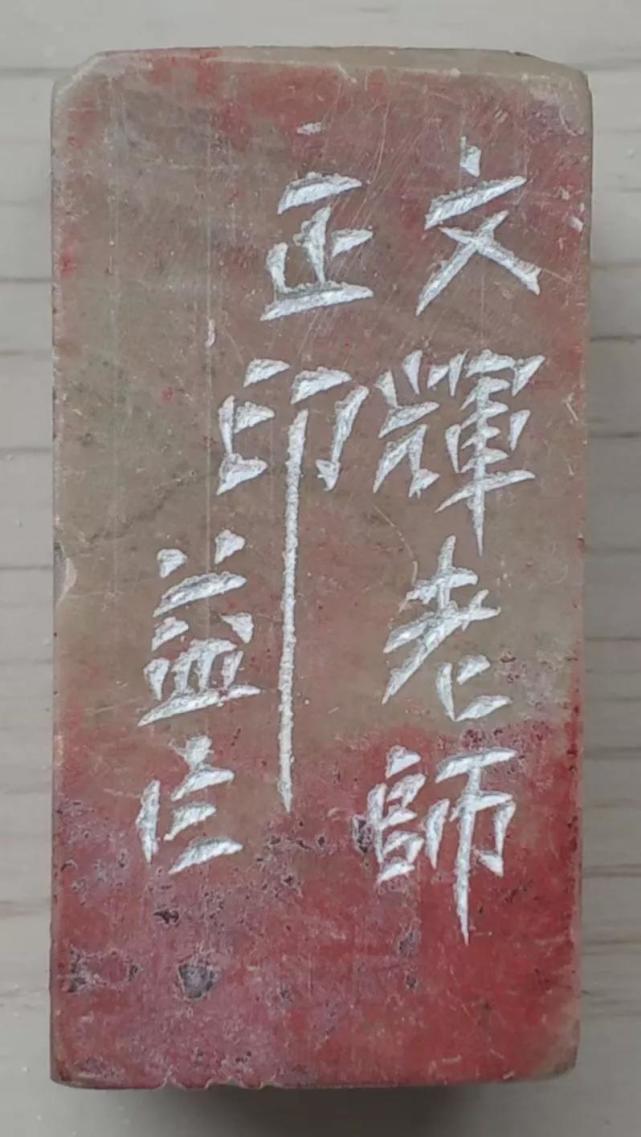 文輝老師
正印
益